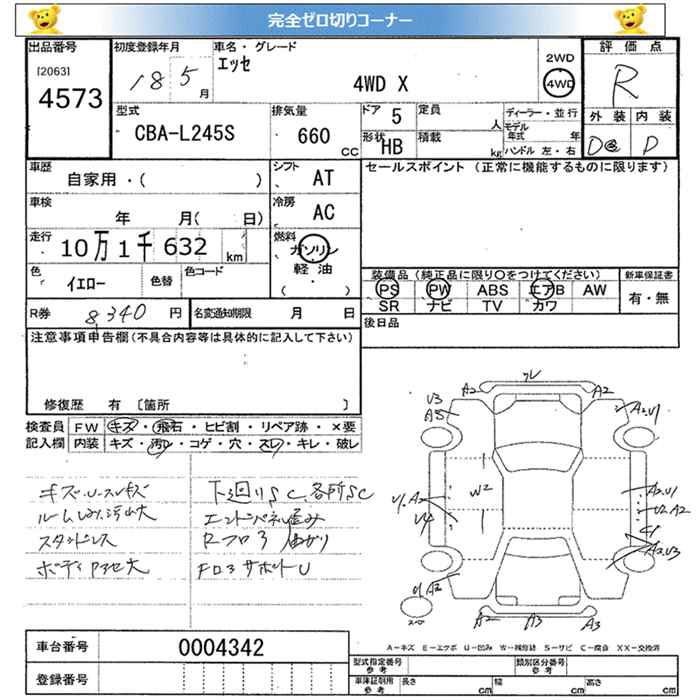 完全ゼロ切りコーナー
出品番号 初度登録年月 車名・グレード 評価点
[2063] 18 5月 エッセ 2WD
4573 4WD X 4WD R
型式 排気量 ドア 5 定員 人 ディーラー・並行 外装 内装
CBA-L245S 660 CC 形状 HB 積載 kg モデル年式 年 ハンドル 左・右 D D
車歴 シフト セールスポイント (正常に機能するものに限ります)
自家用・( ) AT
車検 冷房
年 月( 日) AC
走行 燃料
10万1千632 km ガソリン
軽油
( )
色 イエロー 色替 色コード
装備品 (純正品に限り〇をつけてください) 新車保証書
PS PW ABS エアB AW 有・無
SR ナビ TV カワ
R券 8,340 円 名変通知期限 月 日 後日品
注意事項申告欄(不具合内容等は具体的に記入して下さい)
修復歴 有 [箇所 ]
検査員 FW キズ・飛石・ヒビ割・リペア跡・×要
記入欄 内装 キズ・汚レ・コゲ・穴・スレ・キレ・破レ
キズ.U.スレキズ 下廻りSC、各所SC
ルームしみ汚れ大 エンドパネル歪み
スタッドレス Rフロア曲がり
ボディアセ大 FロアサポートU
ワレ
A2 A2
U3 A3 A2.U1
W2
U1.A2 U4
A2.U1
U2.A2
C1
A2.U3
U1 A2
A2 A3 A3
A－キズ E－エクボ U－凹み W－補修跡 S－サビ C－腐食 XX－交換済
車台番号 0004342 型式指定番号 参考 類別区分番号 参考
登録番号 車庫証明用 参考 長さ cm 幅 cm 高さ cm